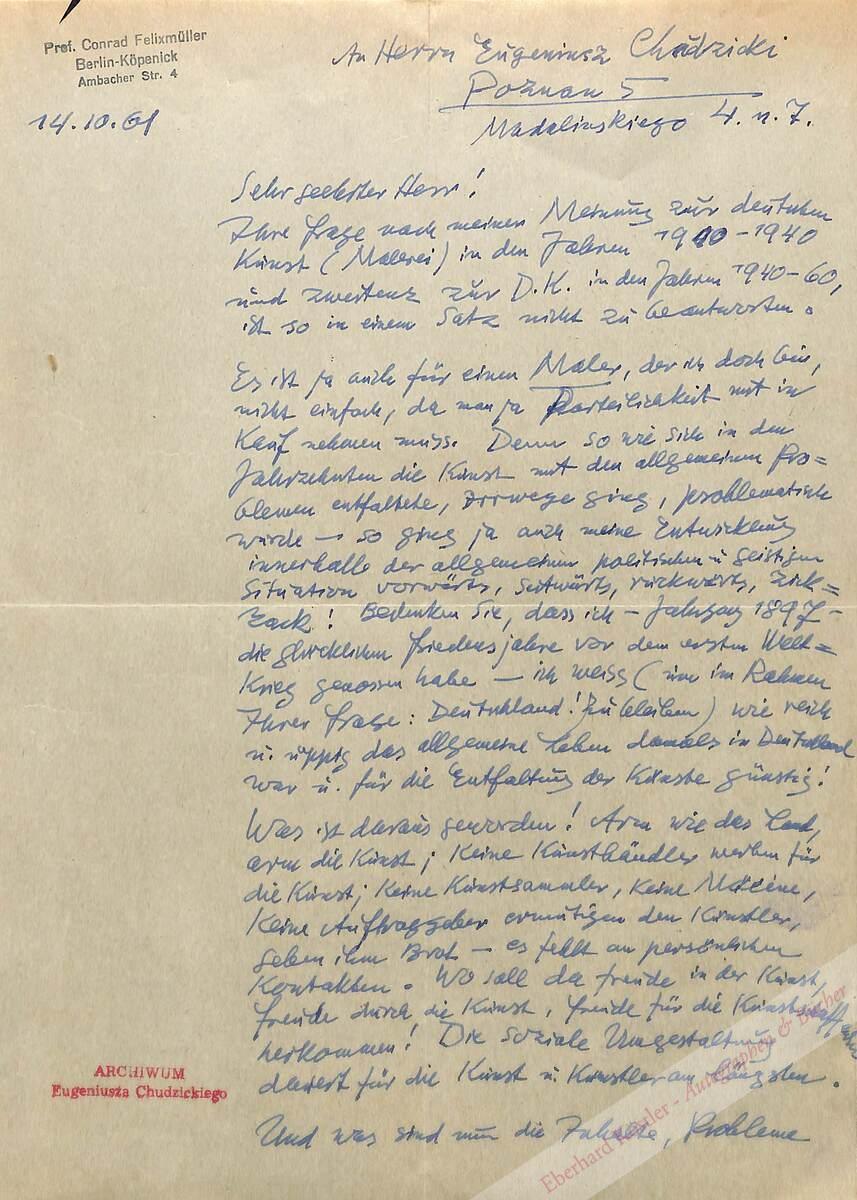 Prof. Conrad Felixmüller
Berlin-Köpenick
Ambacher Str. 4
14.10.61
An Herrn Eugeniusz Chudzicki
Poznan 5
Madalinskiego 4. n. 7.
Sehr geehrter Herr!
Ihre Frage nach meiner Meinung zur deutschen
Kunst (Malerei) in den Jahren 1910-1940
und zweitens zur D.K. in den Jahren 1940-60,
ist so in einem Satz nicht zu beantworten.
Es ist ja auch für einen Maler, der ich doch bin,
nicht einfach, da man ja Parteilichkeit mit in
Kauf nehmen muss. Denn so wie sich in den
Jahrzehnten die Kunst mit den allgemeinen Pro=
blemen entfaltete, irrwege ging, problematisch
wurde – so ging ja auch meine Entwicklung
innerhalb der allgemeinen politischen u geistigen
Situation vorwärts, seitwärts, rückwärts, Zick=
Zack! Bedenken Sie, dass ich – Jahrgang 1897 –
die glücklichen Friedensjahre vor dem ersten Welt=
Krieg genossen habe – ich weiss (um im Rahmen
Ihrer Frage: Deutschland! zu bleiben) wie reich
u. üppig das allgemeine Leben damals in Deutschland
war u. für die Entfaltung der Künste günstig!
Was ist daraus geworden! Arm wie das Land,
arm die Kunst; Keine Kunsthändler werben für
die Kunst; Keine Kunstsammler, Keine Mäcene,
Keine Auftraggeber ermutigen den Künstler,
geben ihm Brot – es fehlt an persönlichen
Kontakten. Wo soll da Freude in der Kunst,
Freude durch die Kunst, Freude für die Kunst
herkommen! Die soziale Umgestaltung
dauert für die Kunst u. Künstler am längsten.
Und was sind nun die Inhalte, Probleme
ARCHIWUM
Eugeniusza Chudzickiego
Eberhard Köstler - Autographen & Bücher